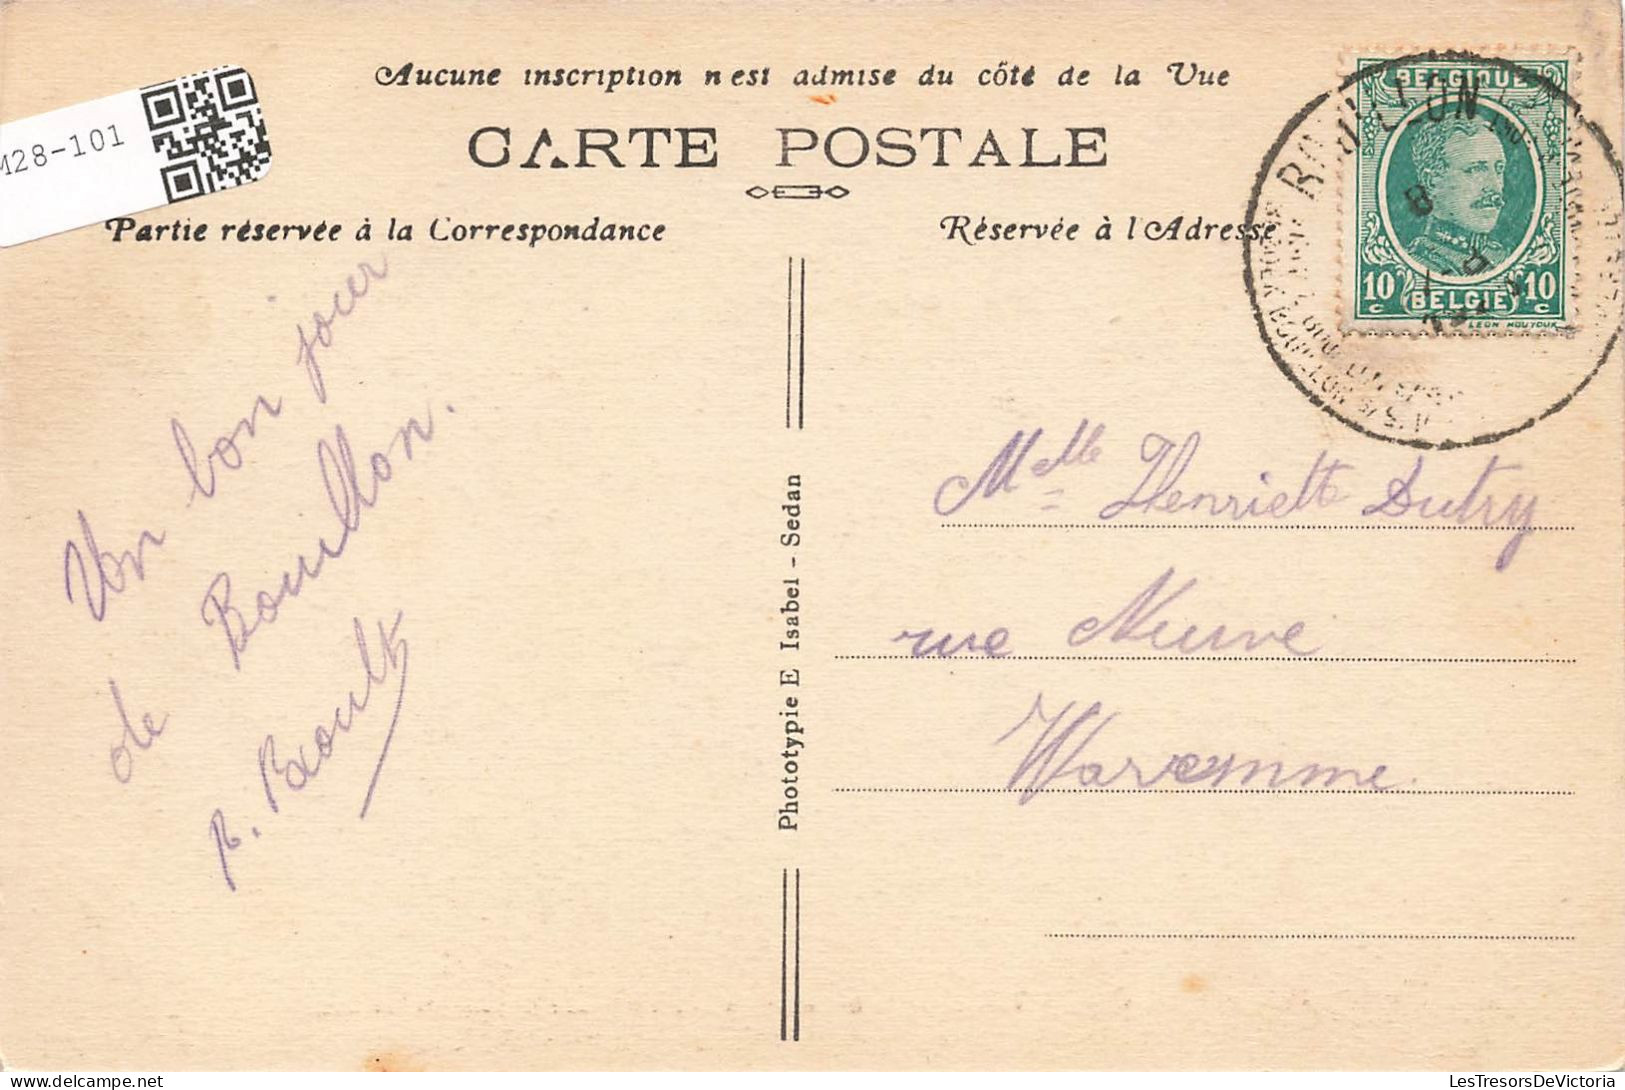 Aucune inscription n'est admise du côté de la Vue
CARTE POSTALE
M28-101
Partie réservée à la Correspondance
Réservée à l'Adresse
BELGIQUE
10 BELGIE 10
c c
LEON HOUYOUX
BOUILLON
8
Un bon jour
de Bouillon.
Mlle Henriette Dutry
rue Neuve
Waremme
Phototypie E Isabel - Sedan
LesTresorsDeVictoria